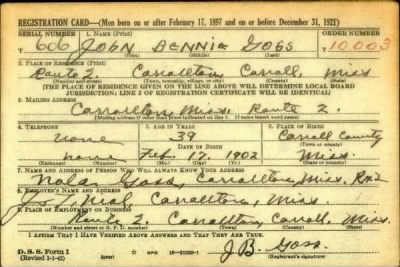 REGISTRATION CARD—(Men born on or after February 17, 1897 and on or before December 31, 1921)
SERIAL NUMBER 1. NAME (Print) ORDER NUMBER
606 JOHN BENNIE GOSS 10,003
2. PLACE OF RESIDENCE (Print)
Route 2. Carrollton, Carroll, Miss
(Number and street) (Town, township, village, or city) (County) (State)
[THE PLACE OF RESIDENCE GIVEN ON THE LINE ABOVE WILL DETERMINE LOCAL BOARD
JURISDICTION; LINE 2 OF REGISTRATION CERTIFICATE WILL BE IDENTICAL]
3. MAILING ADDRESS
Carrollton, Miss. Route 2.
[Mailing address if other than place indicated on line 2. If same insert word same]
4. TELEPHONE 5. AGE IN YEARS 6. PLACE OF BIRTH
none 39 Carroll County
DATE OF BIRTH
Feb. 17, 1902 Miss.
(Exchange) (Number) (Mo.) (Day) (Yr.) (State or country)
7. NAME AND ADDRESS OF PERSON WHO WILL ALWAYS KNOW YOUR ADDRESS
Goss, Carrollton, Miss. Rt 2
8. EMPLOYER'S NAME AND ADDRESS
Neal, Carrollton, Miss.
9. PLACE OF EMPLOYMENT OR BUSINESS
Route 2. Carrollton, Carroll, Miss.
(Number and street or R. F. D. number) (Town) (County) (State)
I AFFIRM THAT I HAVE VERIFIED ABOVE ANSWERS AND THAT THEY ARE TRUE.
D. S. S. Form 1
(Revised 1-1-42) J B. Goss
(Registrant's signature)